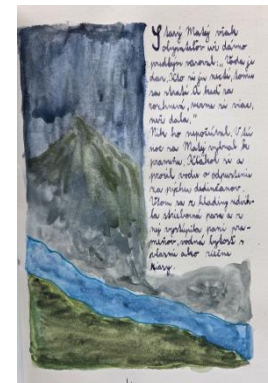 Starý Matej však
obyvateľov už dávno
predtým varoval: „Voda je
dar. Kto si ju nectí, tomu
sa stratí. A keď sa
rozhnevá, vezme si viac,
než dala."
Nik ho nepočúval. V tú
noc sa Matej vybral k
prameňu. Kľakol si a
prosil vodu o odpustenie
za pýchu dedinčanov.
Vtom sa z hladiny zdvih-
la strieborná para a z
nej vystúpila pani pra-
meňov, vodná bytosť s
vlasmi ako riečne
riasy.